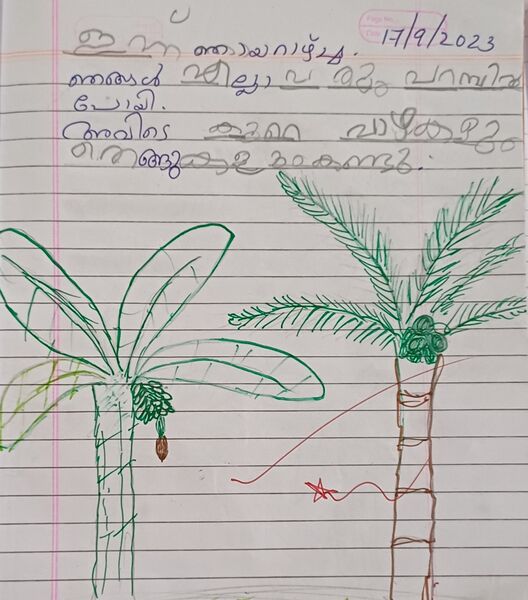 Page No.
Date 17/9/2023
ഇന്ന് ഞായറാഴ്ച.
ഞങ്ങൾ എല്ലാവരും പറമ്പിൽ
പോയി.
അവിടെ കുറെ വാഴകളും
തെങ്ങുകളും കണ്ടു.